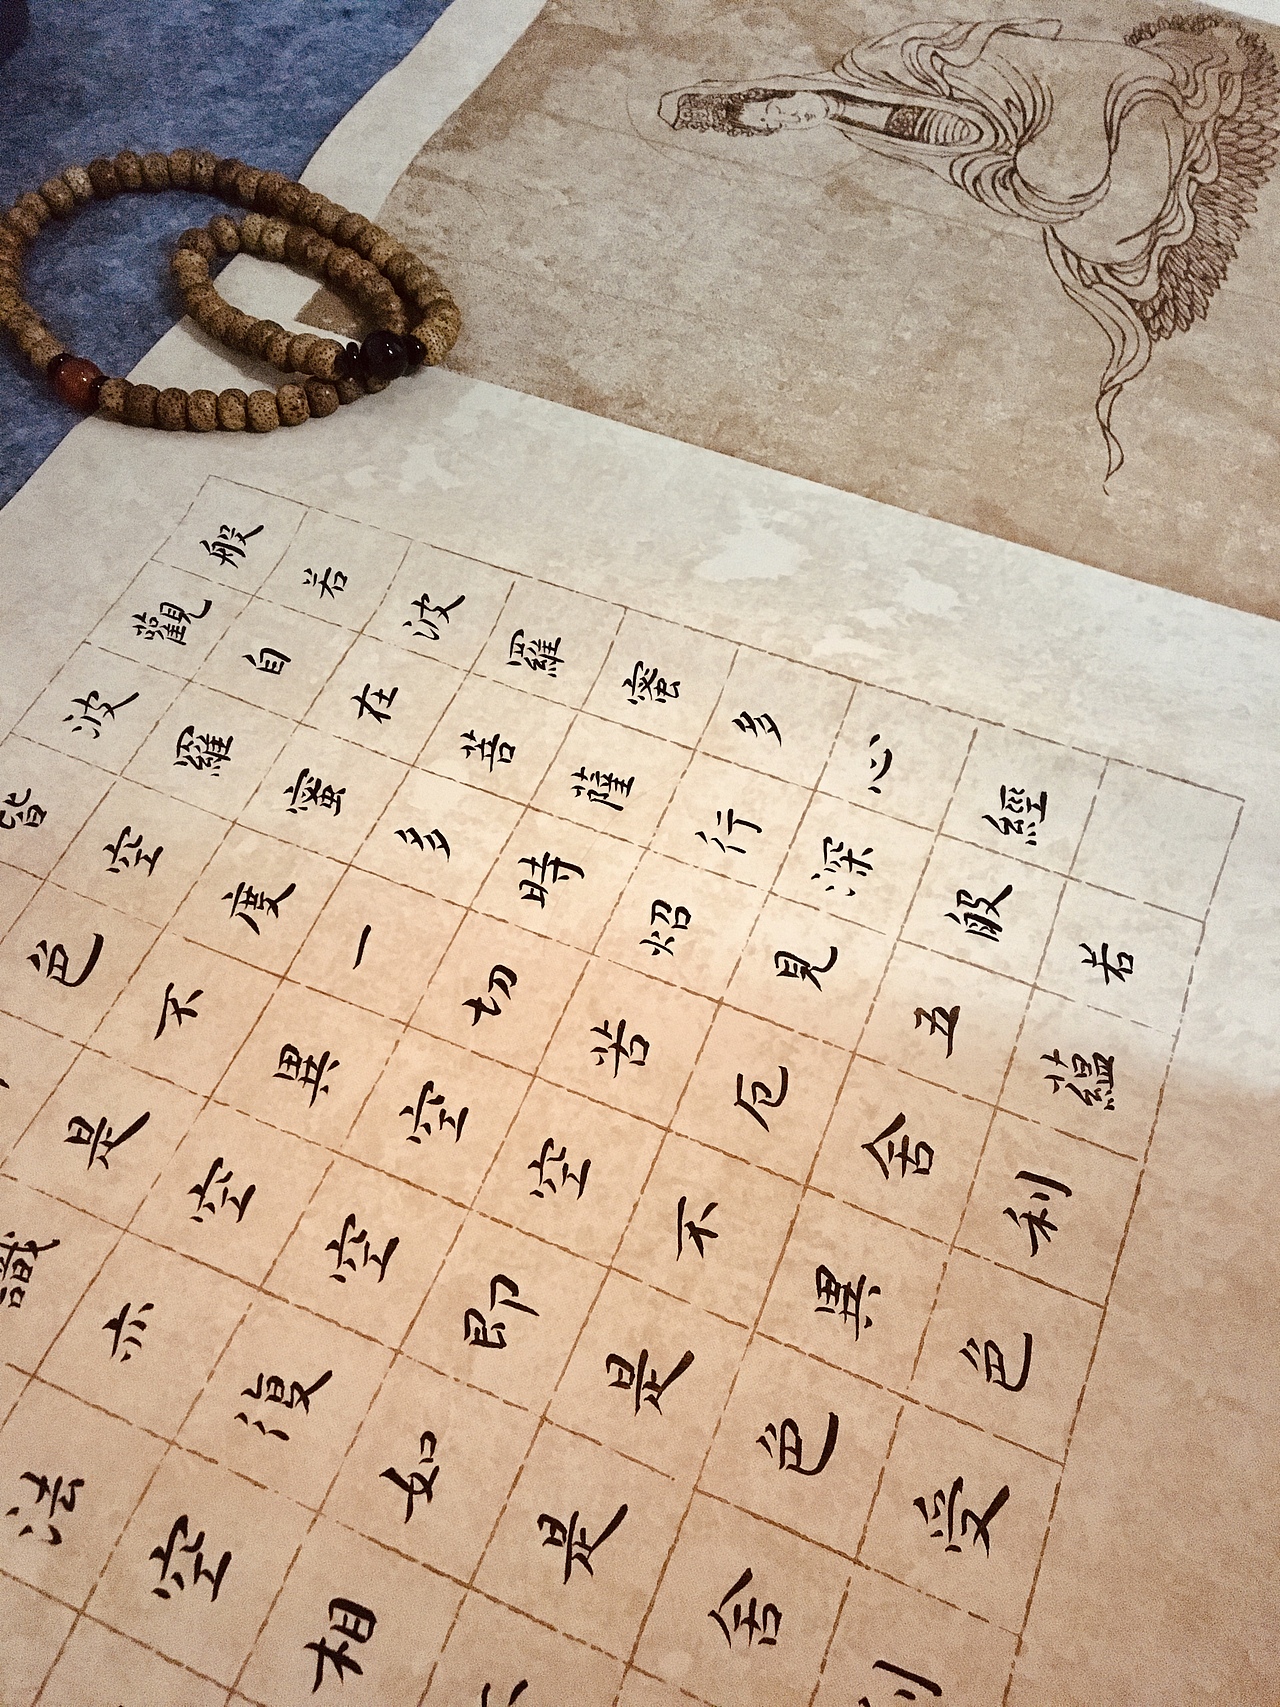 般若波羅蜜多心經
觀自在菩薩行深般若
波羅蜜多時炤見五蘊
皆空度一切苦厄舍利
色不異空空不異色
是空空即是色受
識亦復如是舍
法空相